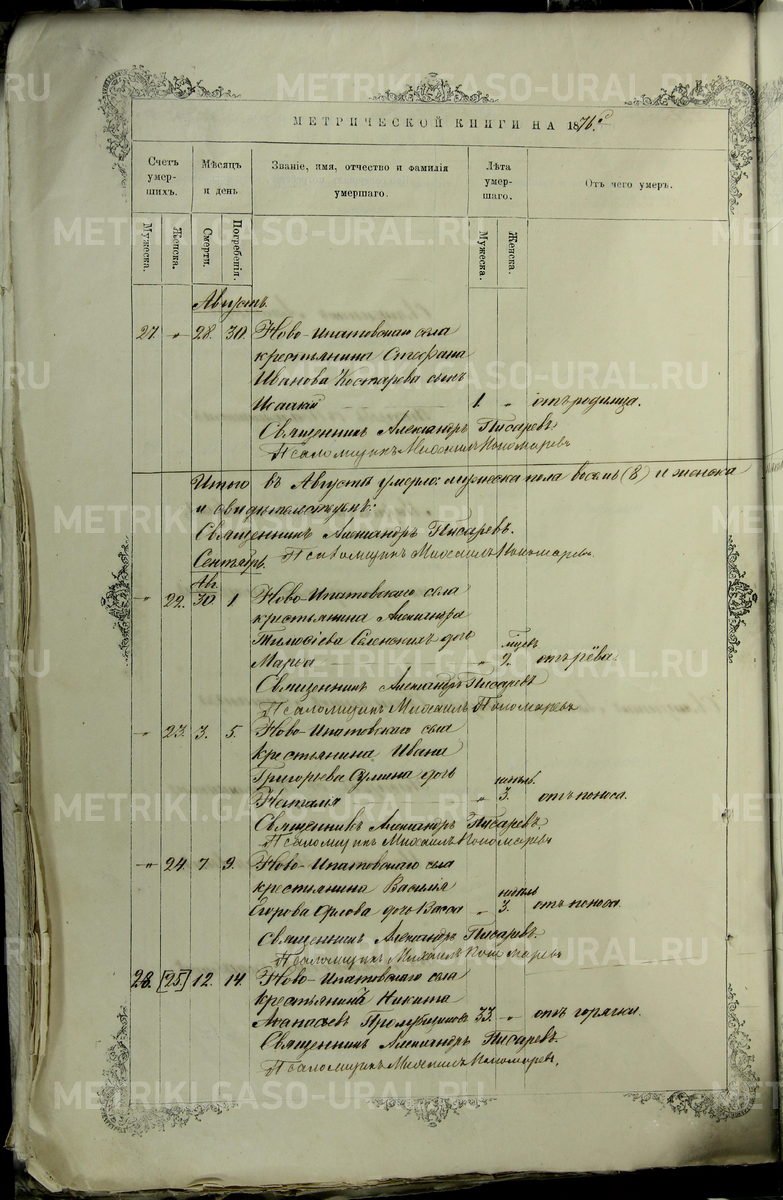 МЕТРИЧЕСКОЙ КНИГИ НА 1876 г.
Счетъ умер- шихъ.
Мѣсяцъ и день
Званіе, имя, отчество и фамилія умершаго.
Лѣта умер- шаго.
Отъ чего умеръ.
Мужеска.
Женска.
Смерти.
Погребенія.
Мужеска.
Женска.
Августъ.
27. „ 28. 30. Ново-Ипатовскаго села
крестьянина Стефана
Иванова Костарева сынъ
Исаакій 1 „ отъ родимца.
Священникъ Александръ Писаревъ
Псаломщикъ Михаилъ Пономаревъ
Итого въ Августѣ умерло: мужеска пола восемь (8) и женска
Священникъ Александръ Писаревъ.
Сентябрь. Псаломщикъ Михаилъ Пономаревъ
Авг.
„ 22. 30 1 Ново-Ипатовскаго села
крестьянина Александра
Тимофіева дочь
Марья „ 2. отъ рёва.
Священникъ Александръ Писаревъ
Псаломщикъ Михаилъ Пономаревъ
„ 23. 3. 5. Ново-Ипатовскаго села
крестьянина Ивана
Григорьева дочь
Наталія „ 3. отъ поноса.
Священникъ Александръ Писаревъ.
Псаломщикъ Михаилъ Пономаревъ
„ 24. 7 9. Ново-Ипатовскаго села
крестьянина Василія
Егорова Орлова дочь Васса „ 3. отъ поноса.
Священникъ Александръ Писаревъ.
Псаломщикъ Михаилъ Пономаревъ
28. [25] 12. 14. Ново-Ипатовскаго села
крестьянинъ Никита
Аѳанасьевъ 33. „ отъ горячки.
Священникъ Александръ Писаревъ.
Псаломщикъ Михаилъ Пономаревъ.
METRIKI.GASO-URAL.RU